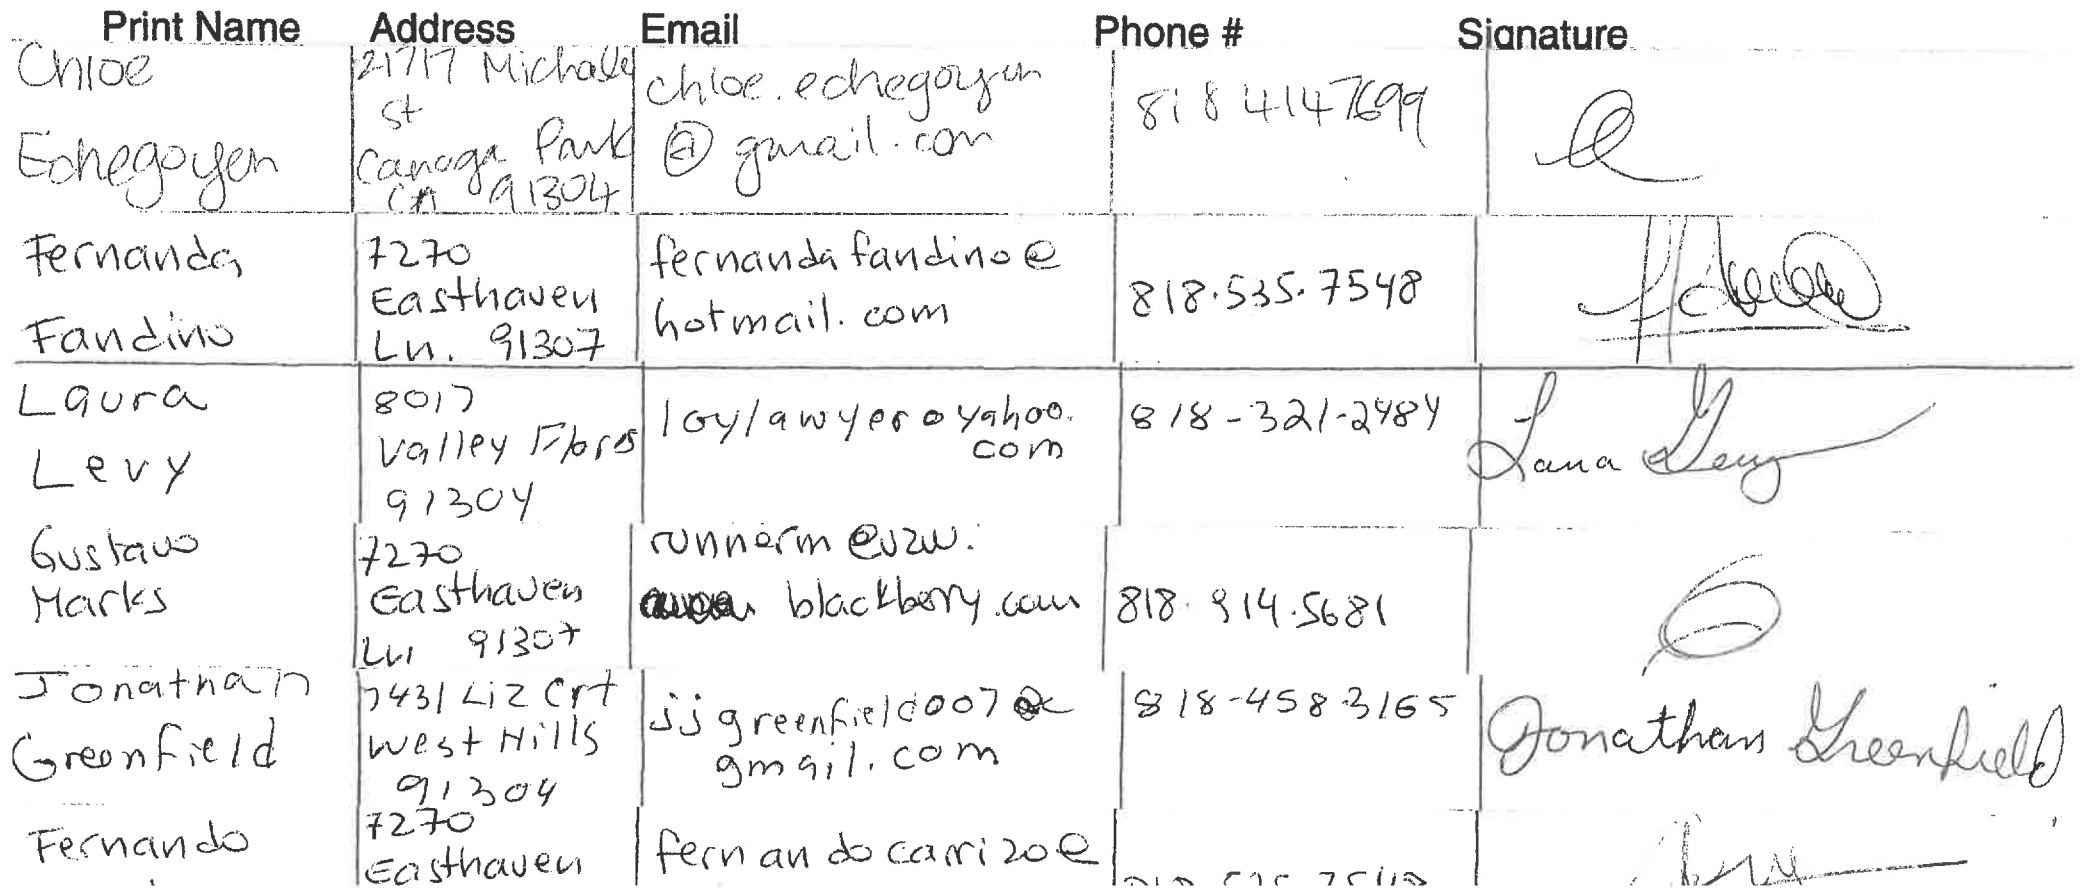 Print Name Address Email Phone # Signature
Chloe
Echegoyen
21717 Michale
st
Canoga Park
CA 91304
chloe.echegoyen
@ gmail.com
818 4147699
Fernanda
Fandino
7270
Easthaven
Ln. 91307
fernandafandino@
hotmail.com
818.535.7548
Laura
Levy
8017
Valley Flores
91304
loylawyer@yahoo.
com
818-321-2484
Gustavo
Marks
7270
Easthaven
Ln 91307
runnerm@vzw.
blackberry.com
818.914.5681
Jonathan
Greenfield
7431 Liz Crt
West Hills
91304
jjgreenfield007@
gmail.com
818-458-3165
Jonathan Greenfield
Fernando
7270
Easthaven
fernandocarrizo@